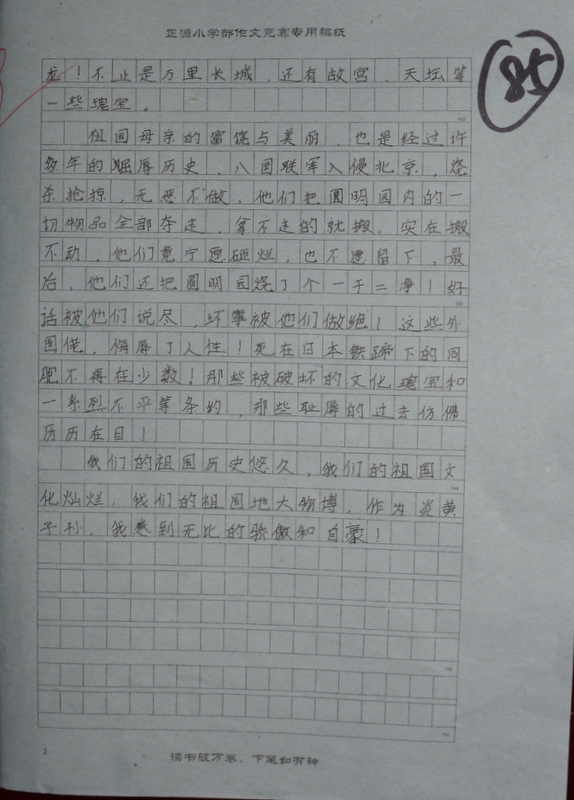 正源小学部作文竞赛专用稿纸
85
龙！不止是万里长城，还有故宫，天坛等
一些瑰宝。
祖国母亲的富饶与美丽，也是经过许
多年的屈辱历史，八国联军入侵北京，烧
杀抢掠，无恶不做，他们把圆明园内的一
切物品全部夺走，拿不走的就搬，实在搬
不动，他们竟宁愿砸烂，也不愿留下。最
后，他们还把圆明园烧了个一干二净！好
话被他们说尽，坏事被他们做绝！这些外
国佬，侮辱了人性！死在日本铁蹄下的同
胞不再在少数！那些被破坏的文化瑰宝和
一系列不平等条约，那些耻辱的过去仿佛
历历在目！
我们的祖国历史悠久，我们的祖国文
化灿烂，我们的祖国地大物博，作为炎黄
子孙，我感到无比的骄傲和自豪！
2
读书破万卷，下笔如有神